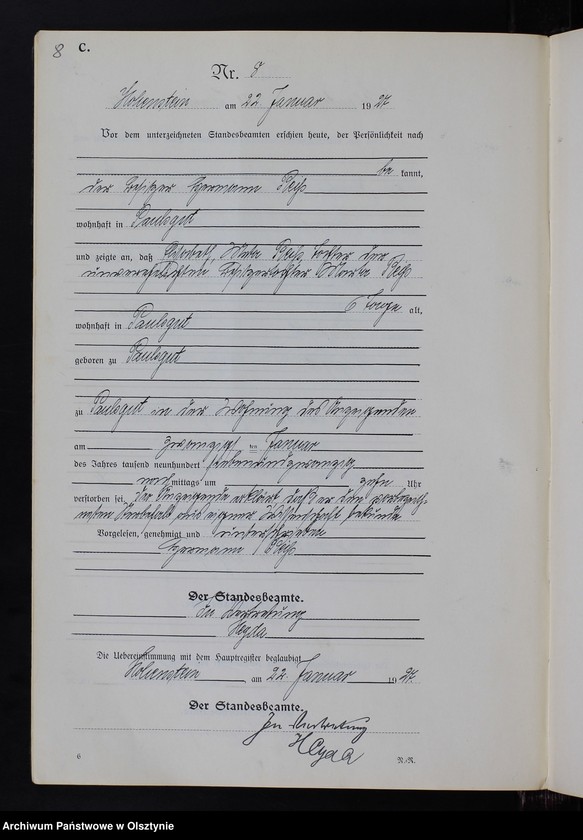 8 C.
Nr. 8
Hohenstein am 22 Januar 1927
Vor dem unterzeichneten Standesbeamten erschien heute, der Persönlichkeit nach
be kannt,
der Besitzer Hermann
wohnhaft in Paulsgut
und zeigte an, daß Elisabeth, Meta Tochter der
unverehelichten Besitzertochter
6 Tage alt,
wohnhaft in Paulsgut
geboren zu Paulsgut
zu Paulsgut in der Wohnung des Anzeigenden
am zwanzigsten Januar
des Jahres tausend neunhundert siebenundzwanzig
nach mittags um zehn Uhr
verstorben sei. Der Anzeigende erklärt, daß er den vorbezeich-
neten Sterbefall aus eigener Wissenschaft bekunde
Vorgelesen, genehmigt und unterschrieben
Hermann
Der Standesbeamte.
In Vertretung
Heyda
Die Uebereinstimmung mit dem Hauptregister beglaubigt
Hohenstein, am 22. Januar 1927.
Der Standesbeamte.
In Vertretung
Heyda
6
Archiwum Państwowe w Olsztynie